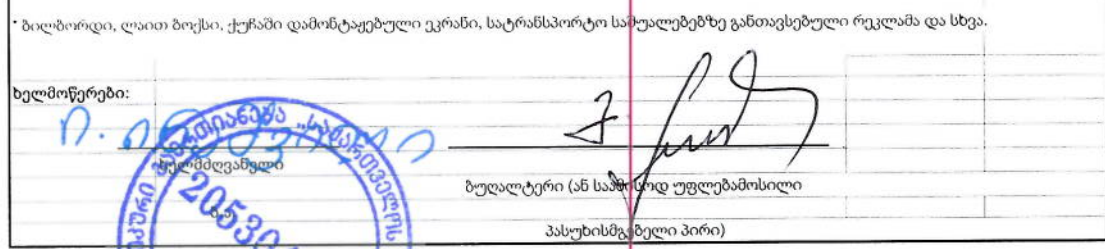 * ბილბორდი, ლაით ბოქსი, ქუჩაში დამონტაჟებული ეკრანი, სატრანსპორტო საშუალებებზე განთავსებული რეკლამა და სხვა.
ხელმოწერები:
ხელმძღვანელი
ბუღალტერი (ან საამისოდ უფლებამოსილი
პასუხისმგებელი პირი)
გაერთიანება „საქართველოს
2053